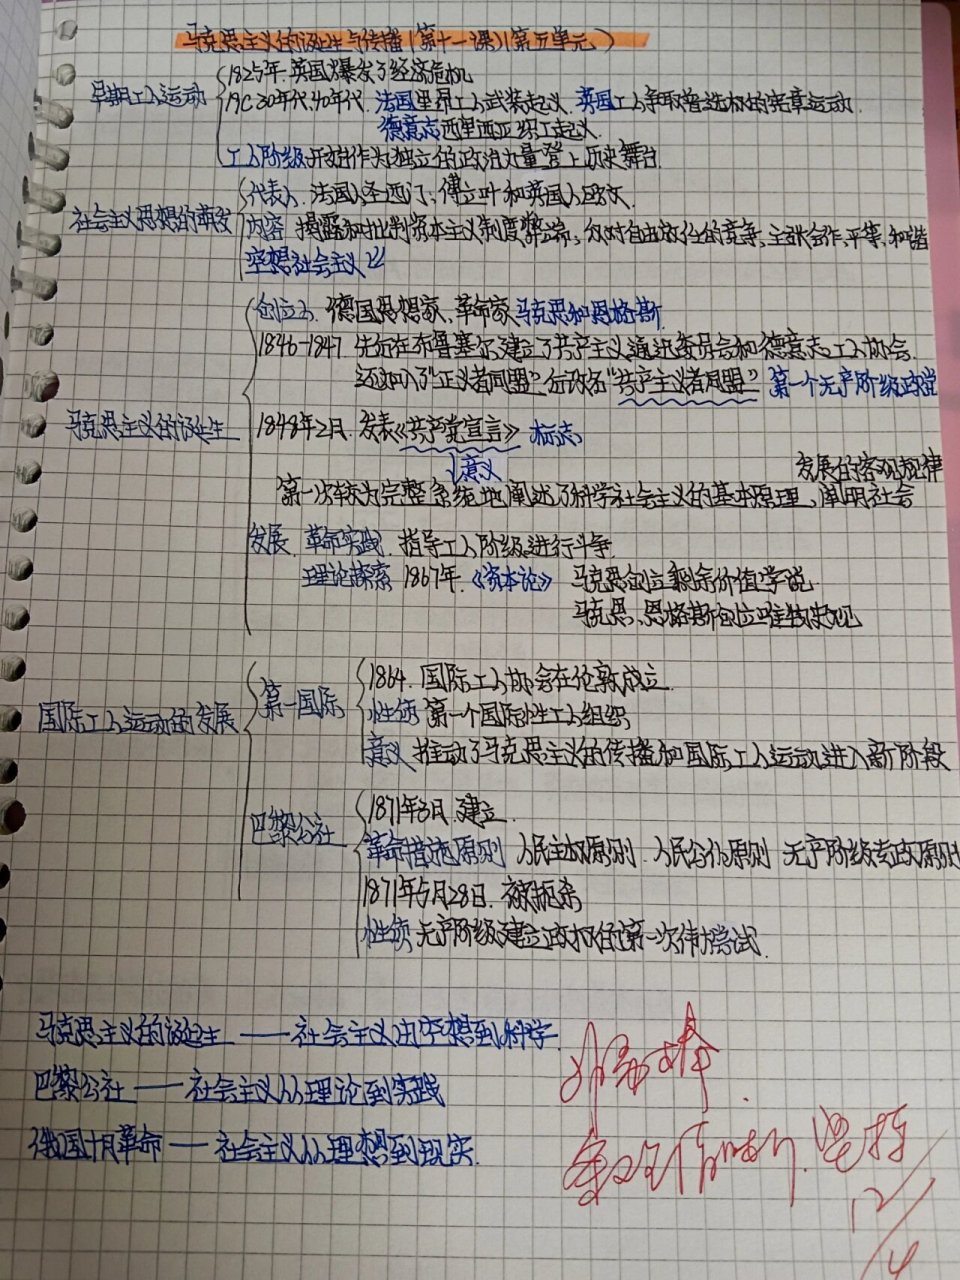 马克思主义的诞生与传播(第十一课)(第五单元)
早期工人运动
1825年.英国爆发了经济危机
19C30年代.40年代. 法国里昂工人武装起义. 英国工人争取普选权的宪章运动.
德意志西里西亚织工起义.
工人阶级开始作为独立的政治力量登上历史舞台.
社会主义思想的萌发
代表人. 法国人圣西门; 傅立叶和英国人欧文.
内容 揭露和批判资本主义制度弊端, 反对自由放任的竞争、主张合作、平等、和谐
空想社会主义
马克思主义的诞生
创立人. 德国思想家、革命家马克思和恩格斯.
1846-1847. 先后在布鲁塞尔建立了共产主义通讯委员会和德意志工人协会.
还加入了“正义者同盟” 后改名“共产主义者同盟” 第一个无产阶级政党
1848年2月. 发表《共产党宣言》 标志
意义
发展的客观规律
第一次较为完整系统地阐述了科学社会主义的基本原理, 阐明社会
发展. 革命实践. 指导工人阶级进行斗争.
理论探索 1867年.《资本论》 马克思创立剩余价值学说
马克思、恩格斯创立唯物史观
国际工人运动的发展
第一国际
1864. 国际工人协会在伦敦成立.
性质 第一个国际性工人组织
意义 推动了马克思主义的传播和国际工人运动进入新阶段
巴黎公社
1871年3月.建立.
革命措施原则 人民主权原则. 人民公仆原则 无产阶级专政原则
1871年5月28日. 被扼杀
性质 无产阶级建立政权的第一次伟大尝试.
马克思主义的诞生——社会主义由空想到科学.
巴黎公社——社会主义从理论到实践
俄国十月革命——社会主义从理想到现实.
坚持
12/4